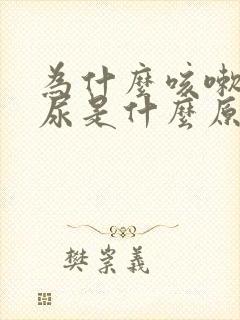 為什麼咳嗽
尿是什麼原
樊崇義